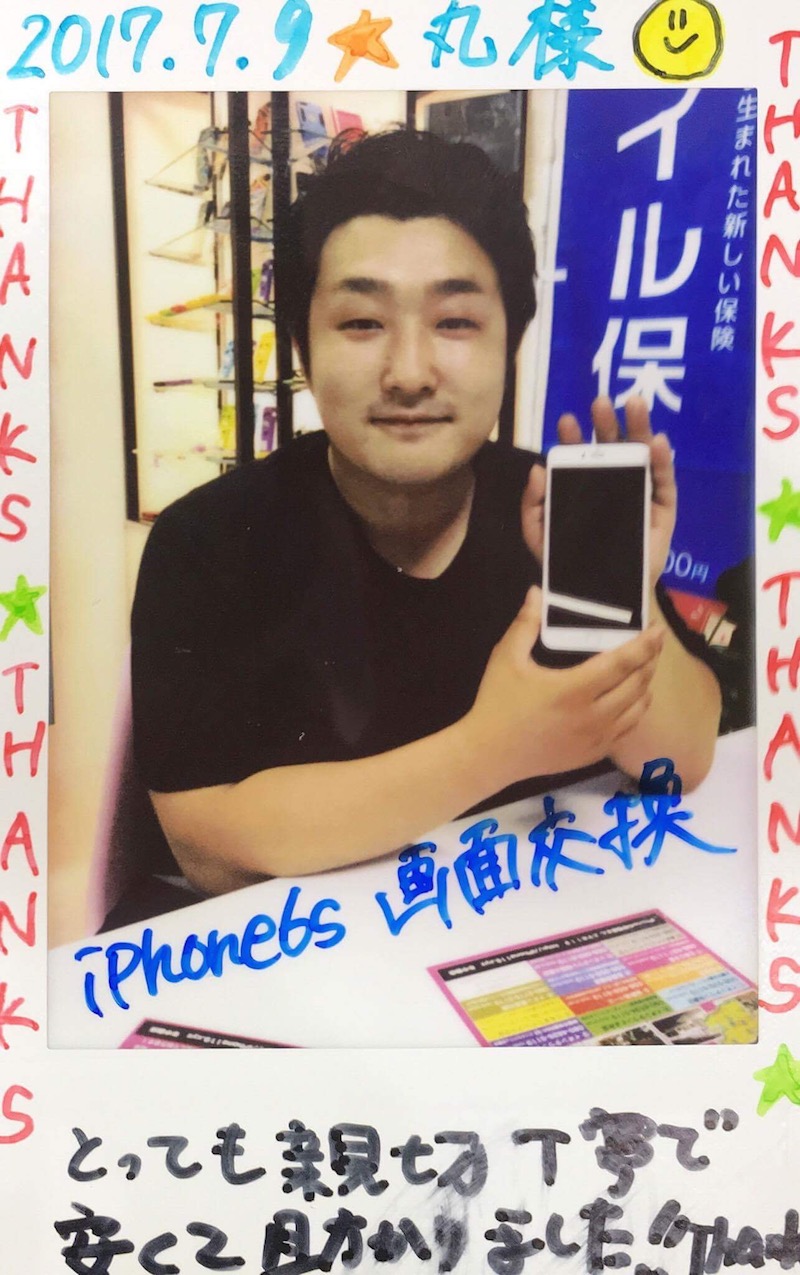 2017.7.9 ★ 丸様
THANKS ★ THANKS
THANKS ★ THANKS ★
生まれた新しい保険
イル保
00円
iPhone6s 画面交換
とっても親切丁寧で
安くて助かりました!!Thank